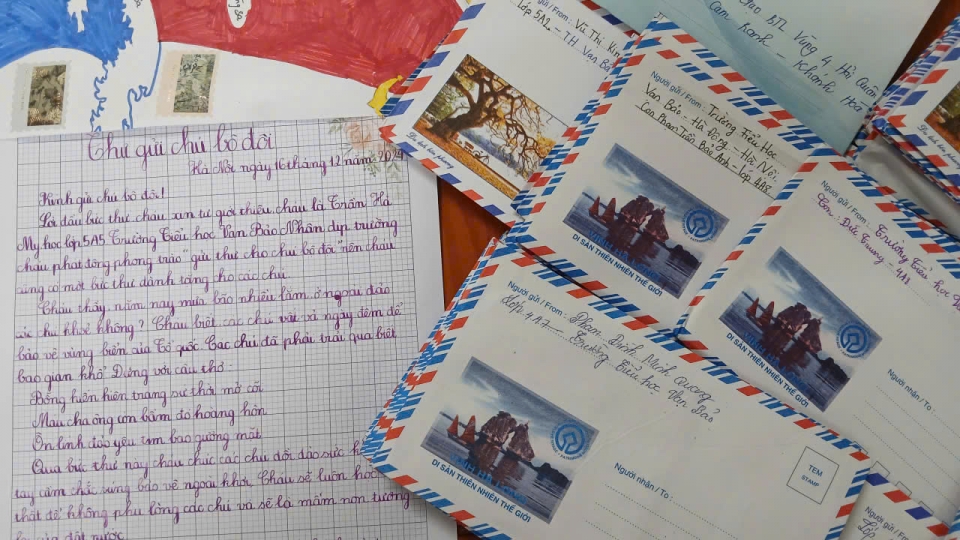 Thư gửi chú bộ đội
Hà Nội ngày 16 tháng 12 năm 2024
Kính gửi chú bộ đội!
Là đầu bức thư cháu xin tự giới thiệu, cháu là Trần Hà
My học lớp 5A5 Trường Tiểu học Văn Bảo Nhân dịp trường
cháu phát động phong trào "gửi thư cho chú bộ đội" nên cháu
cũng có một bức thư dành tặng cho các chú
Cháu thấy năm nay mưa bão nhiều lắm, ở ngoài đảo
các chú khoẻ không? Cháu biết các chú vất vả ngày đêm để
bảo vệ vùng biển của Tổ quốc Các chú đã phải trải qua biết
bao gian khổ Đúng với câu thơ
Bỗng hiên hiên trang sử thời mở cõi
Máu cha ông còn bầm đỏ hoàng hôn
Ôn linh đảo yêu tim bao gương mặt
Qua bức thư này cháu chúc các chú dồi dào sức
tay cầm chắc súng bảo vệ ngoài khơi Cháu sẽ luôn học
thật để không phụ lòng các chú và sẽ là mầm non tương
đất nước
Người gửi / From: Vũ Thị Kim
Lớp 5A2 - TH Văn Bả
Người gửi / From: Trường Tiểu Học
Văn Bảo - Hà Đông - Hà Nội.
Con Phan Trần Bảo Anh - lớp 4A8
DI SẢN THIÊN NHIÊN THẾ GIỚI
đảo BTL Vùng 4 Hải Quân
Cam Ranh - Khánh Hoà
Người gửi / From: Trường Tiểu học
Con: Đức Trung - 4A1
DI SẢN THIÊN NHIÊN THẾ GIỚI
Người nhận / To:
Người gửi / From: Phan Đình Minh Quang
Lớp 4A7 Trường Tiểu học Văn Bảo
DI SẢN THIÊN NHIÊN THẾ GIỚI
Người nhận / To:
TEM
STAMP
Người gửi / From:
Lớp